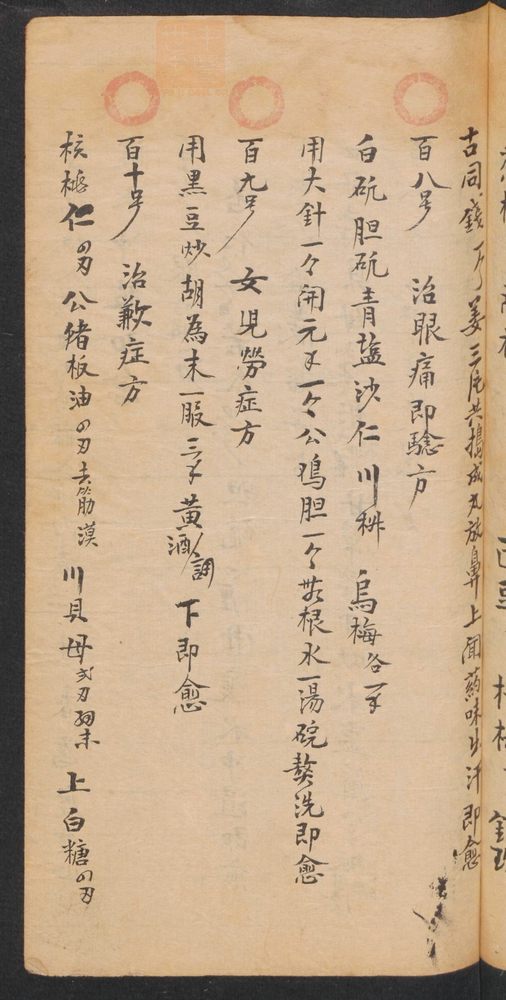 古同錢一个姜三片共搗成丸放鼻上聞药味出汗即愈
百八号 治眼痛即騐方
白矾胆矾青盐沙仁川楝 烏梅各一个
用大針一个開元才一个公鳮胆一个 根水一湯碗熬洗即愈
百九号 女児勞症方
用黑豆炒胡為末一服三才黄酒調下即愈
百十号 治歉症方
核桃仁四刃公猪板油四刃去筋漠 川貝母弍刃細末 上白糖四刃